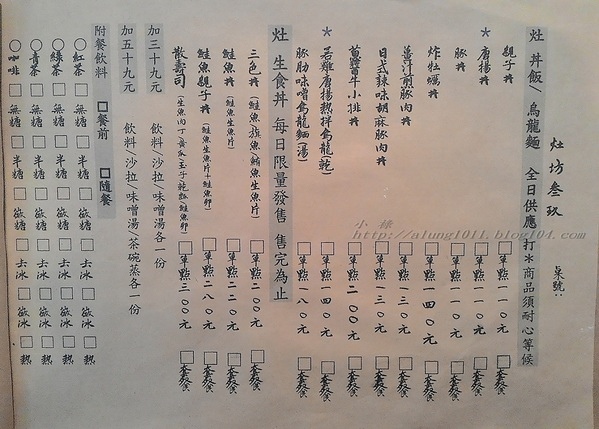 灶坊叁玖 桌號:
灶 丼飯/烏龍麵 全日供應 打*商品須耐心等候
親子丼 □單點一一0元 □套餐
*唐揚丼 □單點一一0元 □套餐
豚丼 □單點一一0元 □套餐
炸牡蠣丼 □單點一四0元 □套餐
薑汁煎豚肉丼 □單點一三0元 □套餐
日式辣味胡麻豚肉丼 □單點一三0元 □套餐
牛小排丼 □單點二00元 □套餐
*若雞唐揚熱拌烏龍(乾) □單點一四0元 □套餐
豚肋味噌烏龍麵(湯) □單點一八0元 □套餐
灶 生食丼 每日限量發售 售完為止
三色丼(鮭魚旗魚鮪魚生魚片) □單點二00元 □套餐
鮭魚丼(鮭魚生魚片) □單點二二0元 □套餐
鮭魚親子丼(鮭魚生魚片+鮭魚卵) □單點二八0元 □套餐
散壽司(生魚肉丁黃瓜玉子乾瓢鮭魚卵) □單點三00元 □套餐
加三十九元 飲料/沙拉/味噌湯各一份
加五十九元 飲料/沙拉/味噌湯/茶碗蒸各一份
附餐飲料 □餐前 □隨餐
○紅茶 □無糖 □半糖 □微糖 □去冰 □微冰 □熱
○綠茶 □無糖 □半糖 □微糖 □去冰 □微冰 □熱
○青茶 □無糖 □半糖 □微糖 □去冰 □微冰 □熱
○咖啡 □無糖 □半糖 □微糖 □去冰 □微冰 □熱
http://alung1011.blog104.com